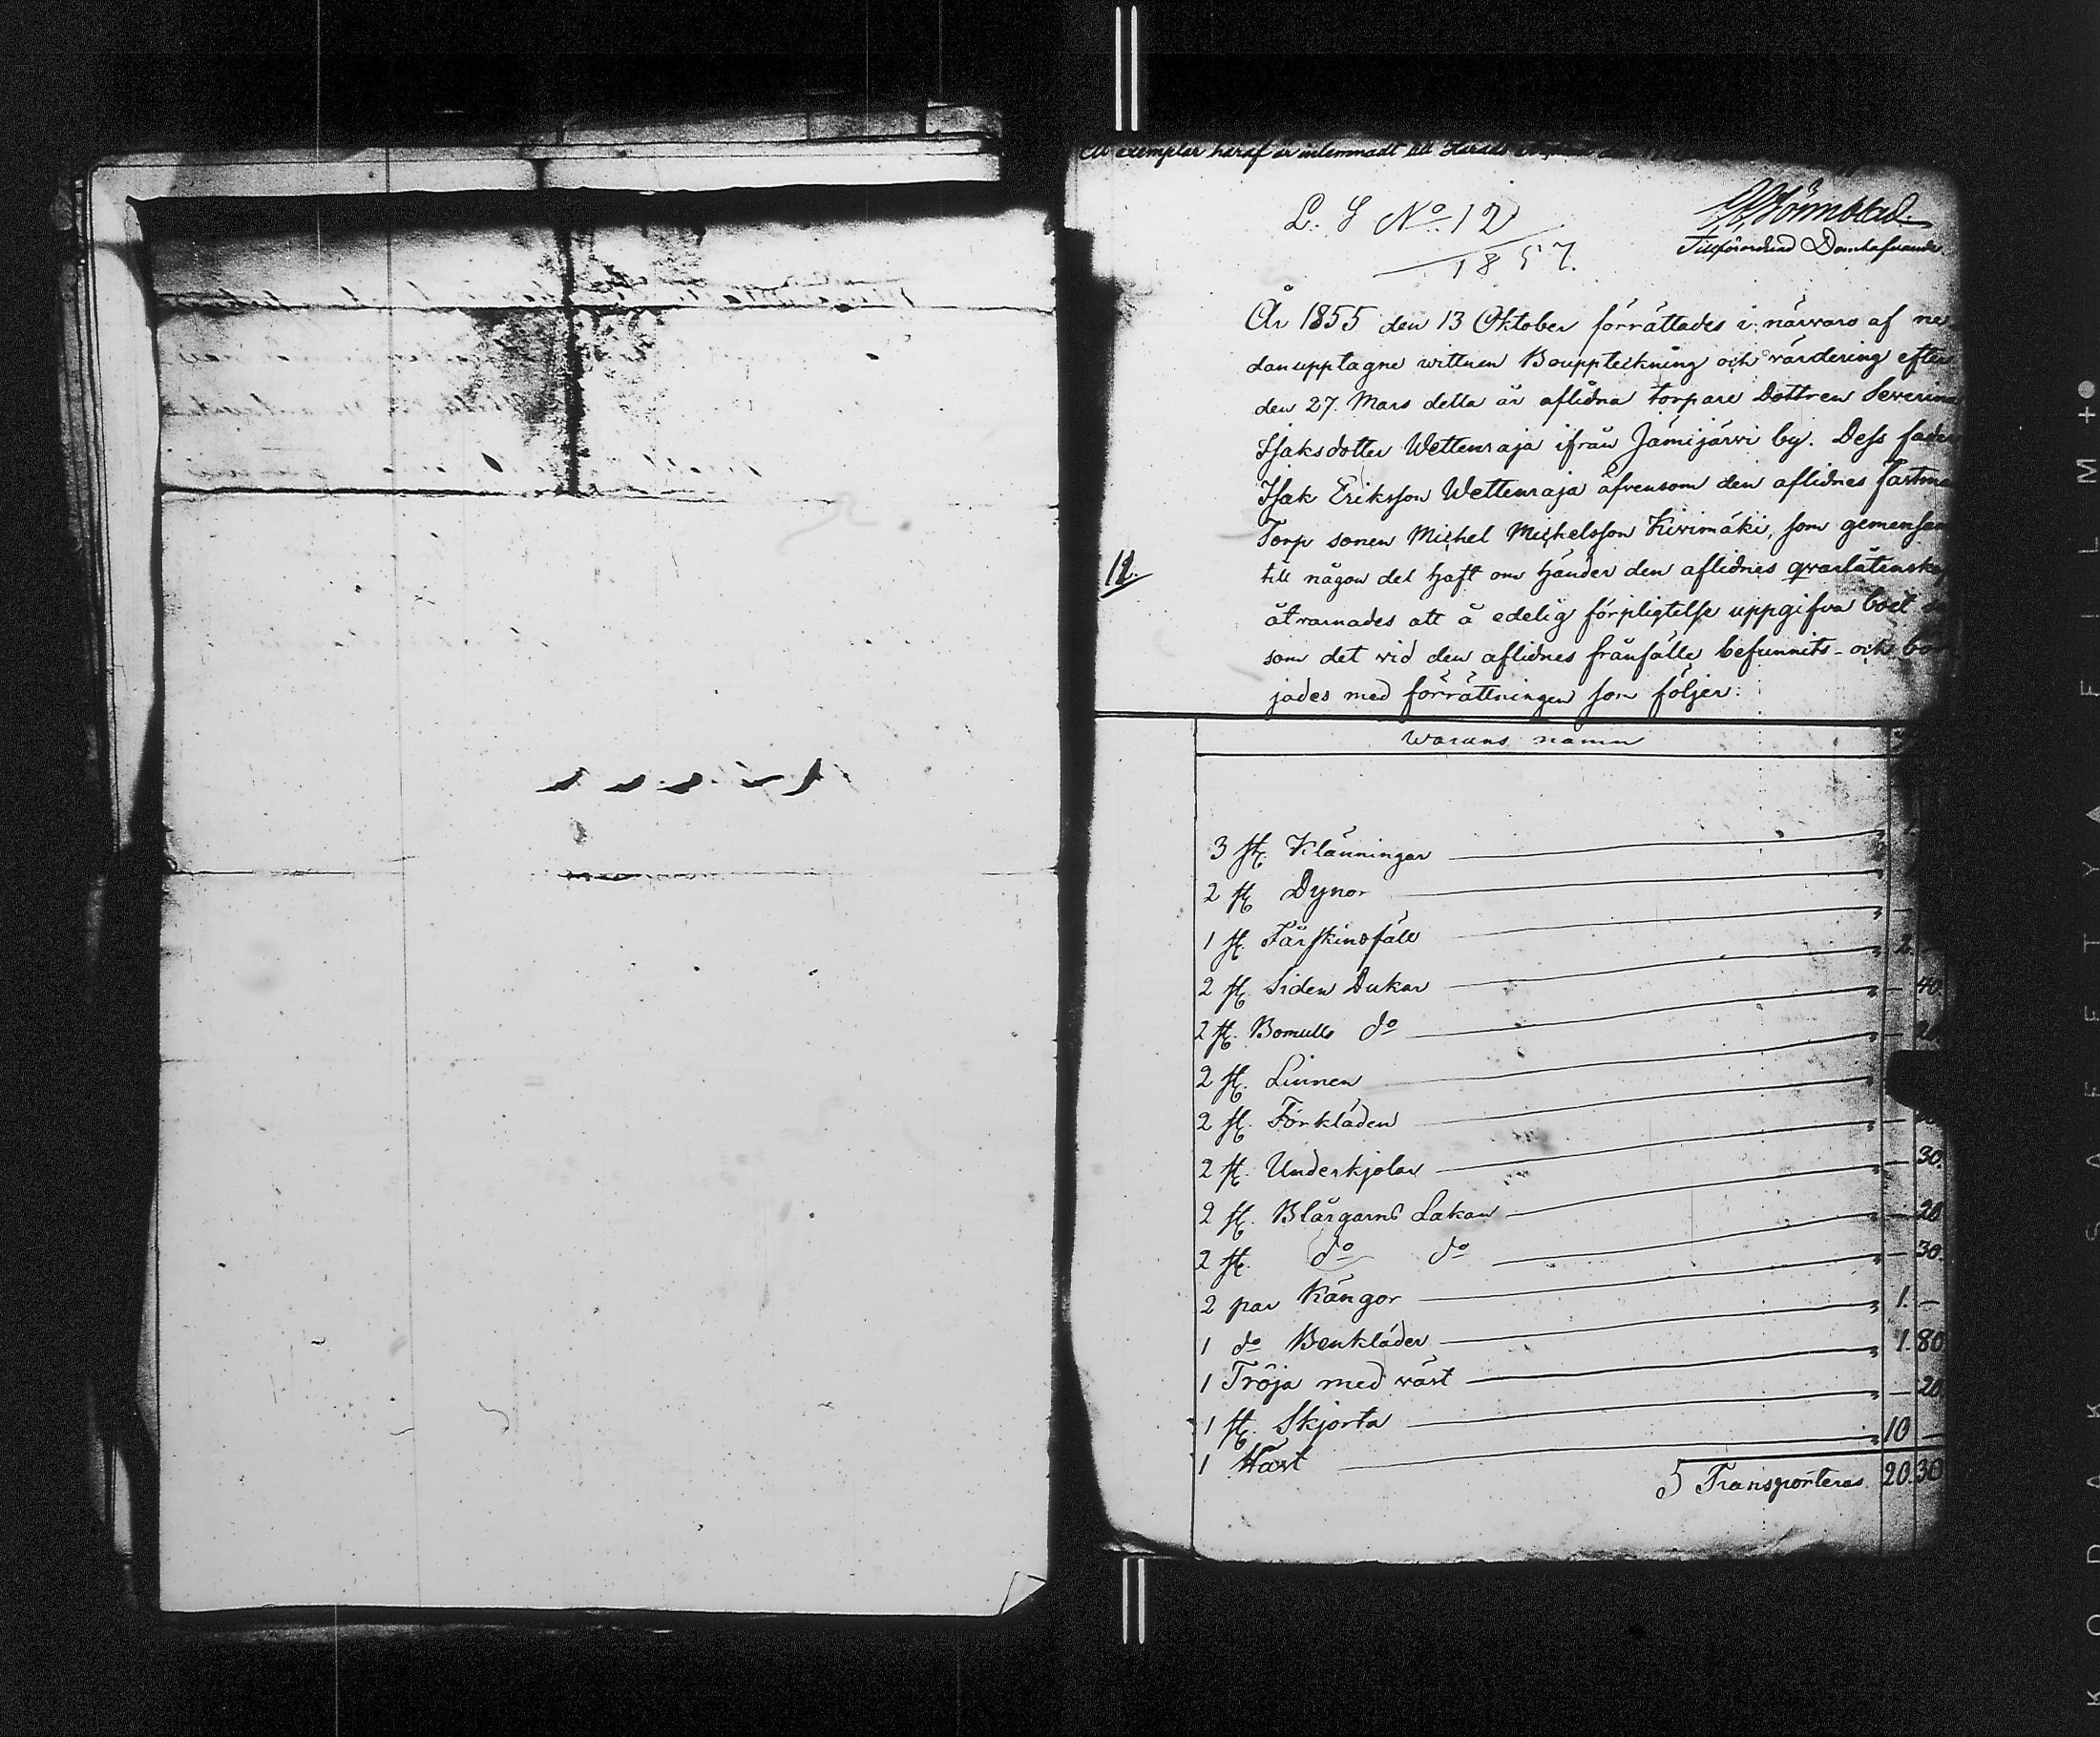 Ett exemplar häraf är inlemnadt till Härads
L. S No. 12
1857.
Tillförordnad Domhafvande.
År 1855 den 13 Oktober förrättades i närvaro af ne-
danupptagne wittnen Bouppteckning och värdering efter
den 27. Mars detta år aflidna torpare Dottren Severina
Isaksdotter Wettenraja ifrån Jämijärvi by. Dess fader
Isak Eriksson Wettenraja äfvensom den aflidnes fästme
Torp sonen Michel Michelsson Kivimäki, som gemensam
till någon del haft om händer den aflidnes qvarlåtenskap
åtvarnades att å edelig förpligtelse uppgifva boet
som det vid den aflidnes frånfälle befunnits - och bör-
jades med förrättningen som följer:
12.
Warans namn
3 st. Klänningar 1.
2 st. Dynor
1 st. Fårskinsfäll —
2 st. Siden Dukar 2.
2 st. Bomulls do — 40.
2 st. Linnen — 20.
2 st. Förkläden
2 st. Underkjolar —
2 st. Blårgarns Lakan — 30.
2 st. do do — 20
2 par Kängor — 30.
1 do Benkläder 1. —
1 Tröja med väst 1. 80
1 st. Skjorta — 20
1 Häst 10 —
Transporteras 20. 30
KODAK SAFETY FILM